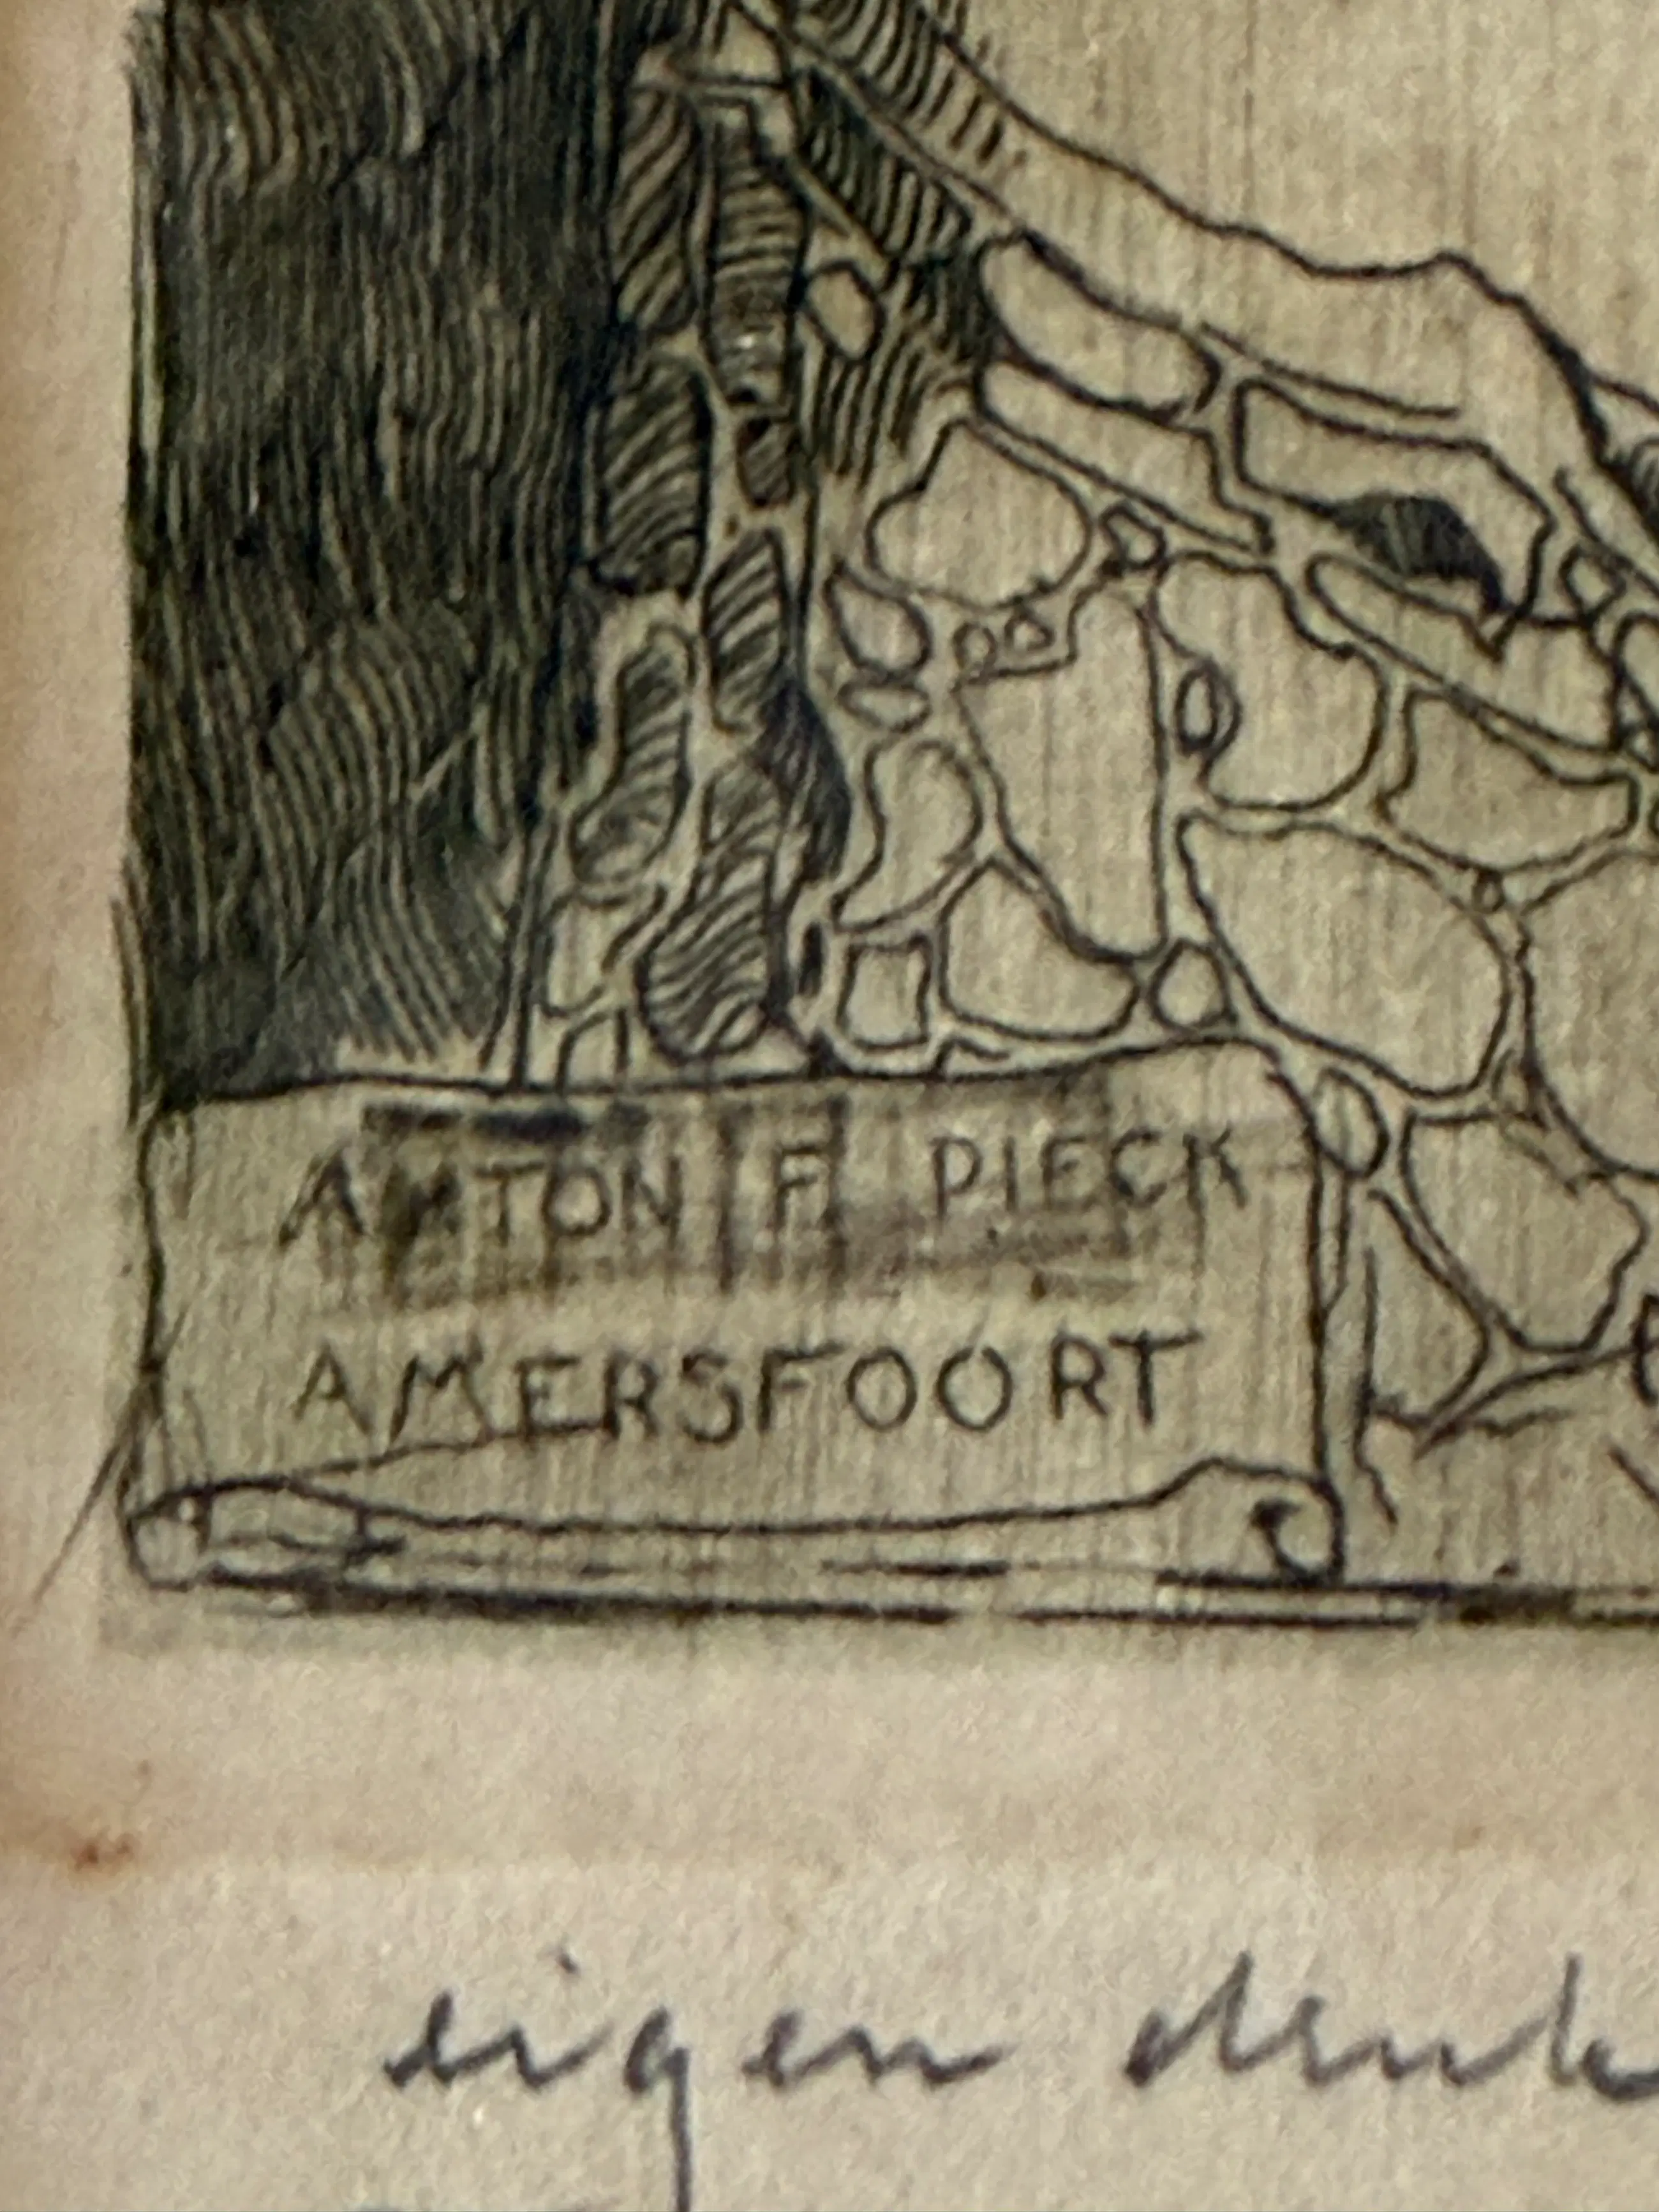 ANTON F. PIECK
AMERSFOORT
eigen druk